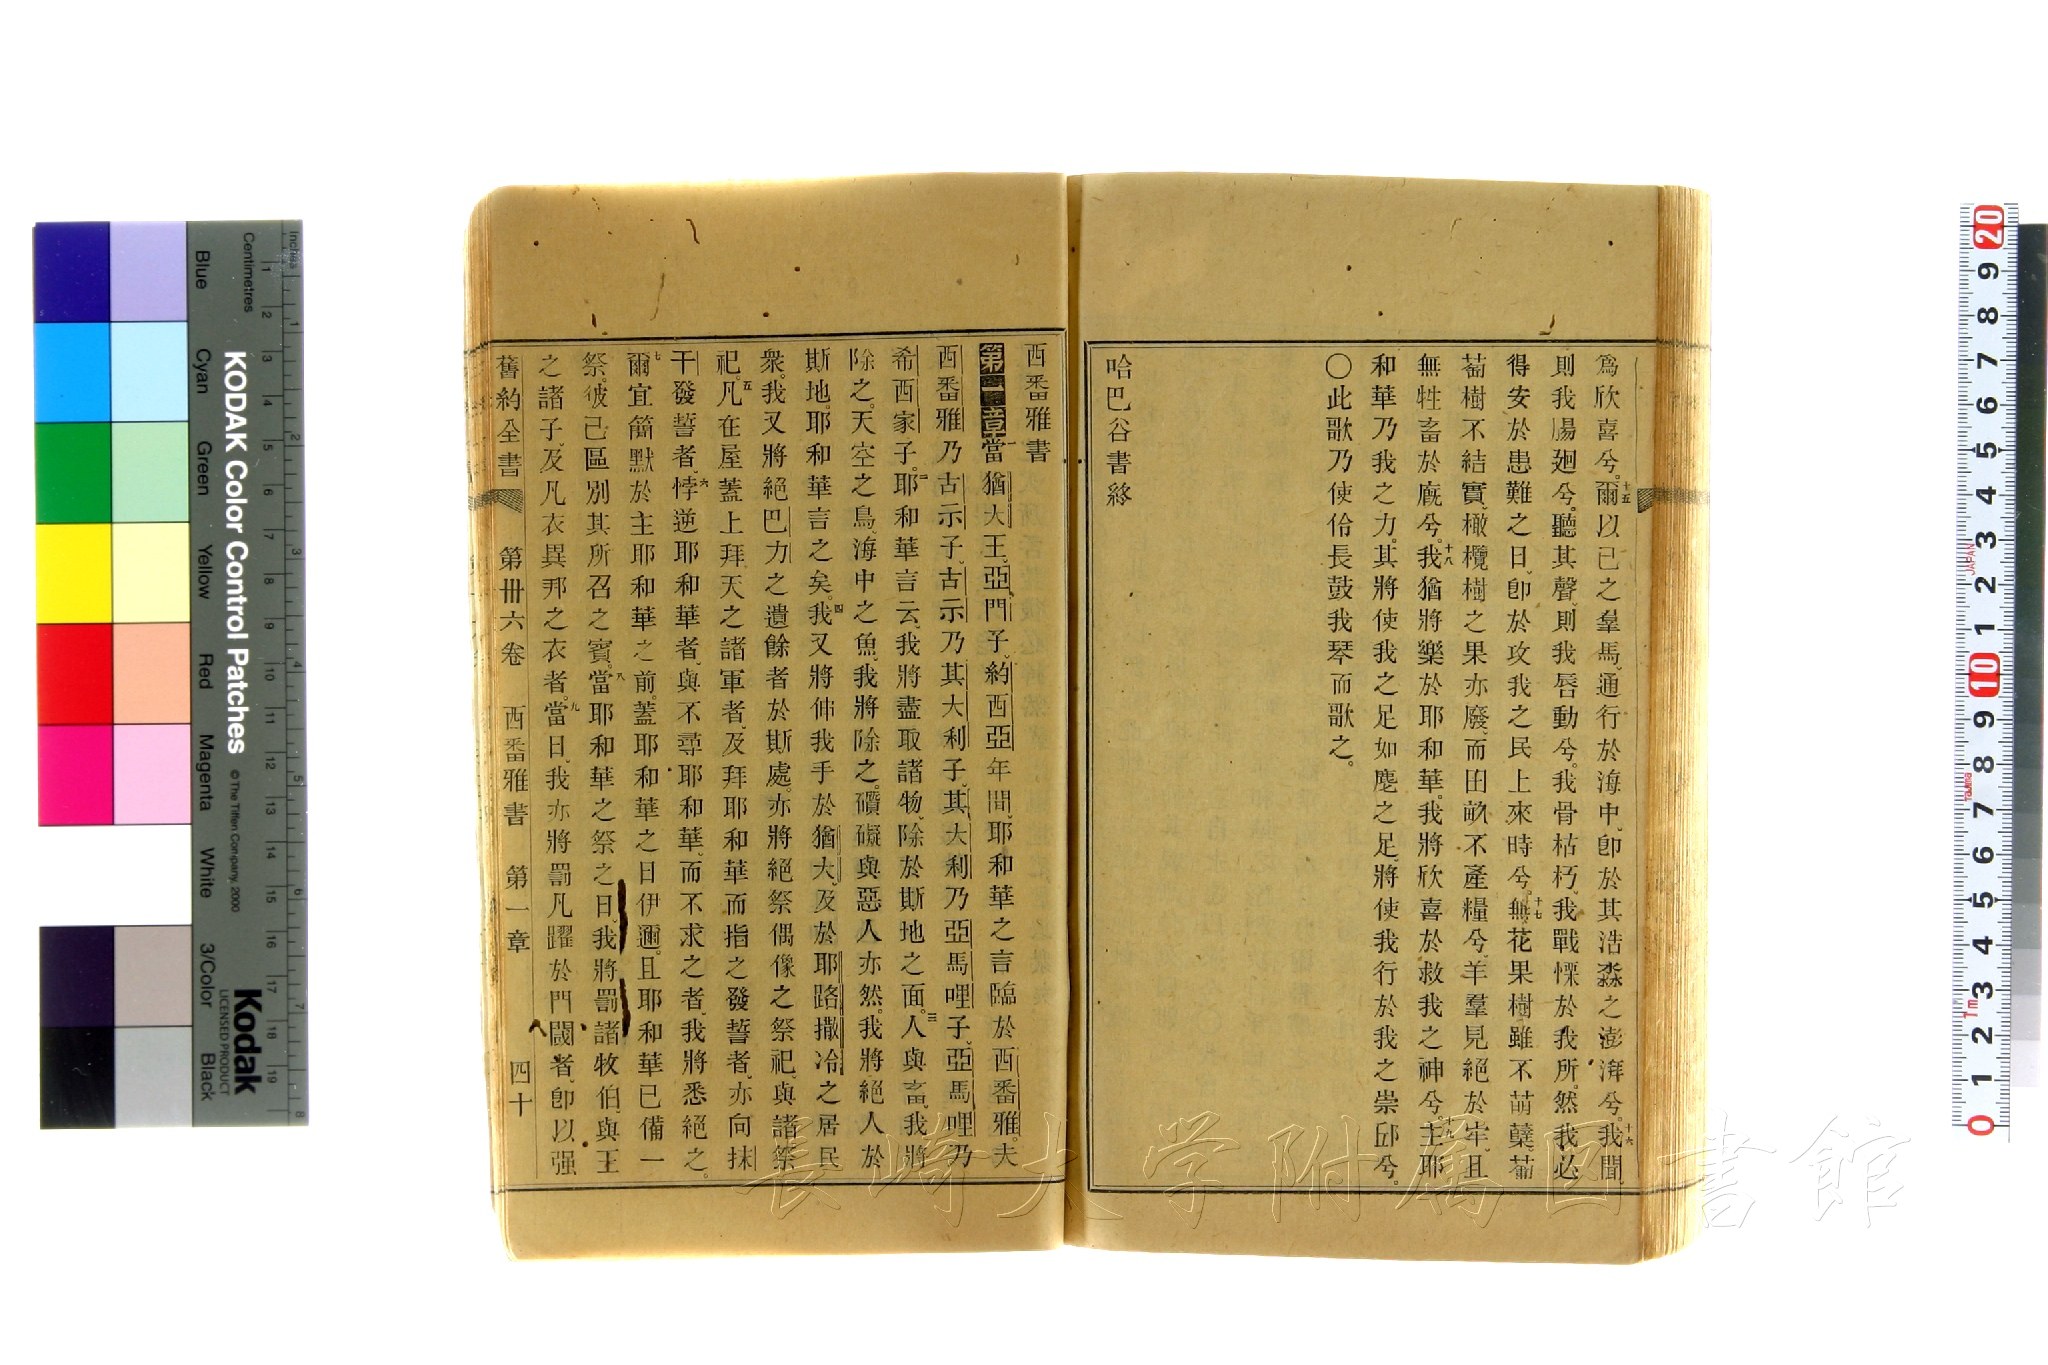 爲欣喜兮。十五爾以己之羣馬、通行於海中、卽於其浩淼之澎湃兮。十六我聞、
則我腸廻兮。聽其聲、則我唇動兮。我骨枯朽、我戰慄於我所。然我必
得安於患難之日、卽於攻我之民上來時兮。十七無花果樹雖不萌蘖、葡
萄樹不結實、橄欖樹之果亦廢、而田畝不產糧兮、羊羣見絕於牢、且
無牲畜於廐兮。十八我猶將樂於耶和華。我將欣喜於救我之神兮。十九主耶
和華乃我之力。其將使我之足如麀之足、將使我行於我之崇邱兮。
〇此歌乃使伶長鼓我琴而歌之。
哈巴谷書終
西番雅書
第一章一當猶大王、亞們子、約西亞年間、耶和華之言臨於西番雅。夫
西番雅乃古示子、古示乃其大利子、其大利乃亞馬哩子、亞馬哩乃
希西家子。二耶和華言云、我將盡取諸物、除於斯地之面。三人與畜、我將
除之。天空之鳥、海中之魚、我將除之。礩礙與惡人亦然。我將絕人於
斯地。耶和華言之矣。四我又將伸我手於猶大、及於耶路撒冷之居民
衆。我又將絕巴力之遺餘者於斯處。亦將絕祭偶像之祭祀、與諸祭
祀。五凡在屋蓋上拜天之諸軍者、及拜耶和華而指之發誓者、亦向抹
干發誓者、六悖逆耶和華者、與不尋耶和華、而不求之者、我將悉絕之。
七爾宜簡默於主耶和華之前。蓋耶和華之日伊邇。且耶和華已備一
祭。彼己區別其所召之賓。八當耶和華之祭之日、我將罰諸牧伯、與王
之諸子、及凡衣異邦之衣者。九當日、我亦將罰凡躍於門閾者、卽以强
舊約全書 第卌六卷 西番雅書 第一章 四十
KODAK Color Control Patches
© The Tiffen Company, 2000
Kodak
LICENSED PRODUCT
Inches
Centimetres
Blue
Cyan
Green
Yellow
Red
Magenta
White
3/Color
Black
1 2 3 4 5 6 7 8
1 2 3 4 5 6 7 8 9 10 11 12 13 14 15 16 17 18 19
20 9 8 7 6 5 4 3 2 1 10 9 8 7 6 5 4 3 2 1 0
JAPAN
長崎大学附属図書館